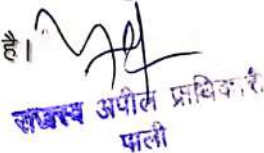 है।
राजस्व अपील प्राधिकारी
पाली